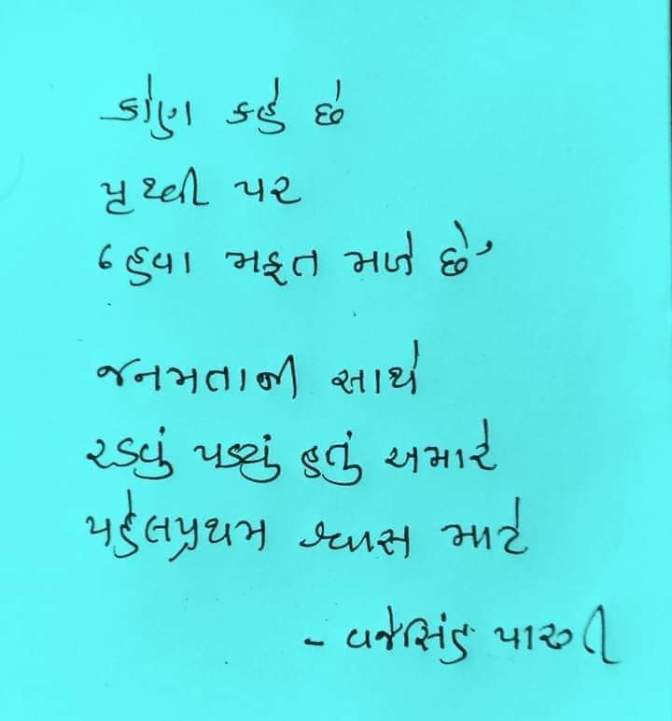 કોણ કહે છે
પૃથ્વી પર
‘હવા મફત મળે છે’
જનમતાની સાથે
રડવું પડ્યું હતું અમારે
પહેલપ્રથમ શ્વાસ માટે
- વજેસિંહ પારગી